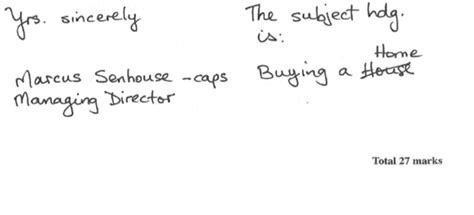 Yrs. sincerely
Marcus Senhouse - caps
Managing Director
The subject hdg.
is:
Home
Buying a House
Total 27 marks